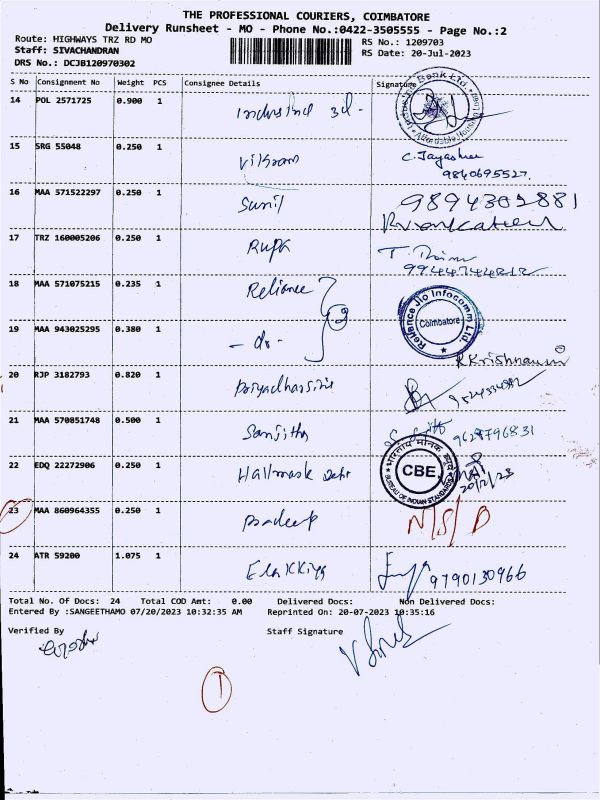 THE PROFESSIONAL COURIERS, COIMBATORE
Delivery Runsheet - MO - Phone No.:0422-3505555 - Page No.:2
Route: HIGHWAYS TRZ RD MO
RS No.: 1209703
Staff: SIVACHANDRAN
RS Date: 20-Jul-2023
DRS No.: DCJB120970302
S No Consignment No Weight PCS Consignee Details Signature
14 POL 2571725 0.900 1
15 SRG 55048 0.250 1 Vikram C. Jayashree
9840695527.
16 MAA 571522297 0.250 1 Sunil 9894302881
17 TRZ 160005206 0.250 1 Rupa
18 MAA 571075215 0.235 1 Reliance
Reliance Jio Infocomm Ltd.
Coimbatore
19 MAA 943025295 0.380 1 - do -
20 RJP 3182793 0.820 1 Priyadharsini
21 MAA 570851748 0.500 1 Sanjitha 9629796831
22 EDQ 22272906 0.250 1 Hallmark
भारतीय मानक ब्यूरो
CBE.
BUREAU OF INDIAN STANDARDS
23 MAA 860964355 0.250 1 Pradeep N/S/D
24 ATR 59200 1.075 1 Elakkiya 9790130966
Total No. Of Docs: 24 Total COD Amt: 0.00 Delivered Docs: Non Delivered Docs:
Entered By :SANGEETHAMO 07/20/2023 10:32:35 AM Reprinted On: 20-07-2023 10:35:16
Verified By Staff Signature